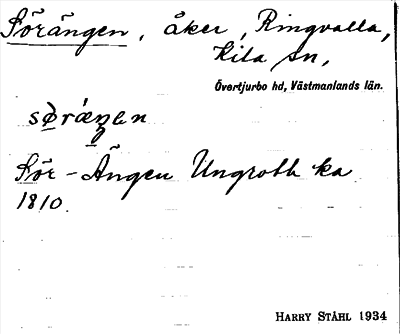 Sörängen, åker, Ringvalla,
Kila sn,
Övertjurbo hd, Västmanlands län.
Sör-Ängen Ungroth ka
1810.
HARRY STÅHL 1934